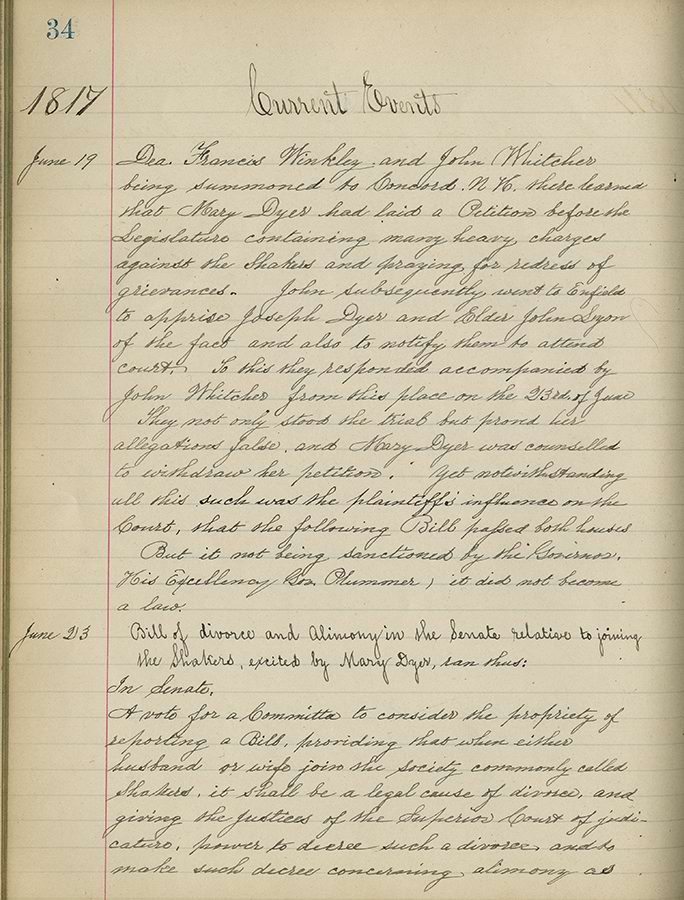 34
1817
Current Events
June 19 Dea. Francis Winkley and John Whitcher
being summoned to Concord. N. H. there learned
that Mary Dyer had laid a Petition before the
Legislature containing many heavy charges
against the Shakers and praying for redress of
grievances. John subsequently went to Enfield
to apprise Joseph Dyer and Elder John Lyon
of the fact and also to notify them to attend
court. To this they responded accompanied by
John Whitcher from this place on the 23rd. of June
They not only stood the trial but provd her
allegations false, and Mary Dyer was counselled
to withdraw her petition. Yet notwithstanding
all this such was the plaintiff's influence on the
Court, that the following Bill passed both houses
But it not being sanctioned by the Governor,
His Excellency Gov. Plummer, it did not become
a law.
June 23 Bill of divorce and Alimony in the Senate relative to joining
the Shakers, excited by Mary Dyer, ran thus:
In Senate,
A vote for a Committe to consider the propriety of
reporting a Bill, providing that when either
husband or wife join the society commonly called
Shakers, it shall be a legal cause of divorce, and
giving the Justices of the Superior Court of judi-
cature, power to decree such a divorce and to
make such decree concerning alimony as